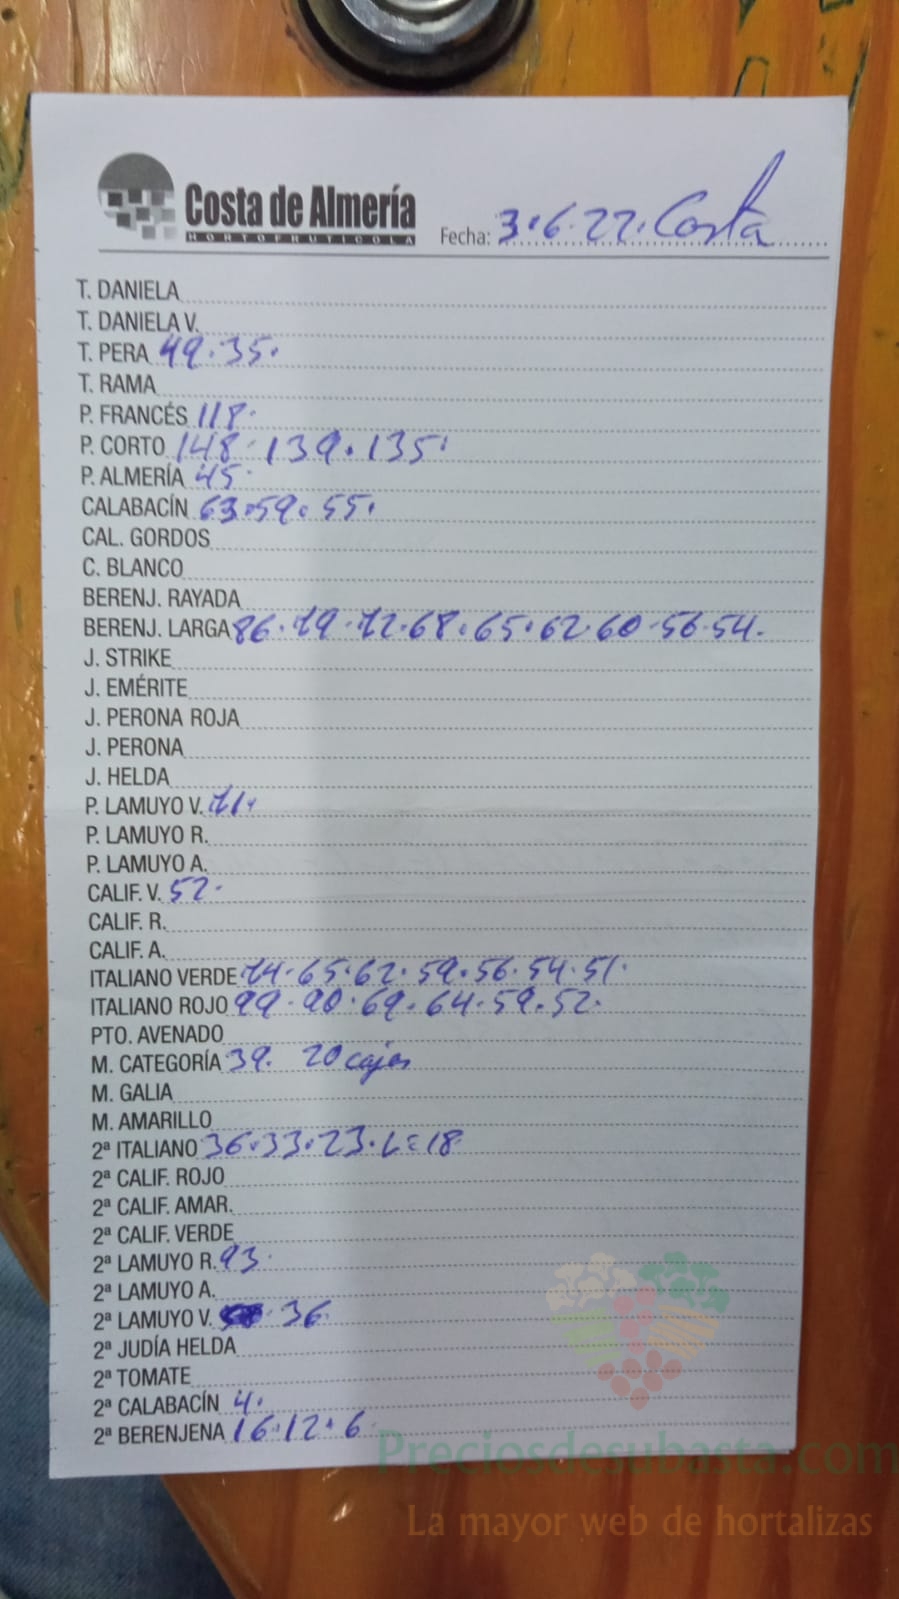 Costa de Almería
HORTOFRUTICOLA
Fecha: 3.6.22. Costa
T. DANIELA
T. DANIELA V.
T. PERA 49.35.
T. RAMA
P. FRANCÉS 118.
P. CORTO 148.139.135.
P. ALMERÍA 45
CALABACÍN 63.59.55.
CAL. GORDOS
C. BLANCO
BERENJ. RAYADA
BERENJ. LARGA 86.79.72.68.65.62.60.56.54.
J. STRIKE
J. EMÉRITE
J. PERONA ROJA
J. PERONA
J. HELDA
P. LAMUYO V. 71.
P. LAMUYO R.
P. LAMUYO A.
CALIF. V. 52.
CALIF. R.
CALIF. A.
ITALIANO VERDE 74.65.62.59.56.54.51.
ITALIANO ROJO 99.90.69.64.59.52.
PTO. AVENADO
M. CATEGORÍA 39. 20 cajas
M. GALIA
M. AMARILLO
2ª ITALIANO 36.33.23.L=18
2ª CALIF. ROJO
2ª CALIF. AMAR.
2ª CALIF. VERDE
2ª LAMUYO R. 93.
2ª LAMUYO A.
2ª LAMUYO V. 36
2ª JUDÍA HELDA
2ª TOMATE
2ª CALABACÍN 4.
2ª BERENJENA 16.12.6
Preciosdesubasta.com
La mayor web de hortalizas